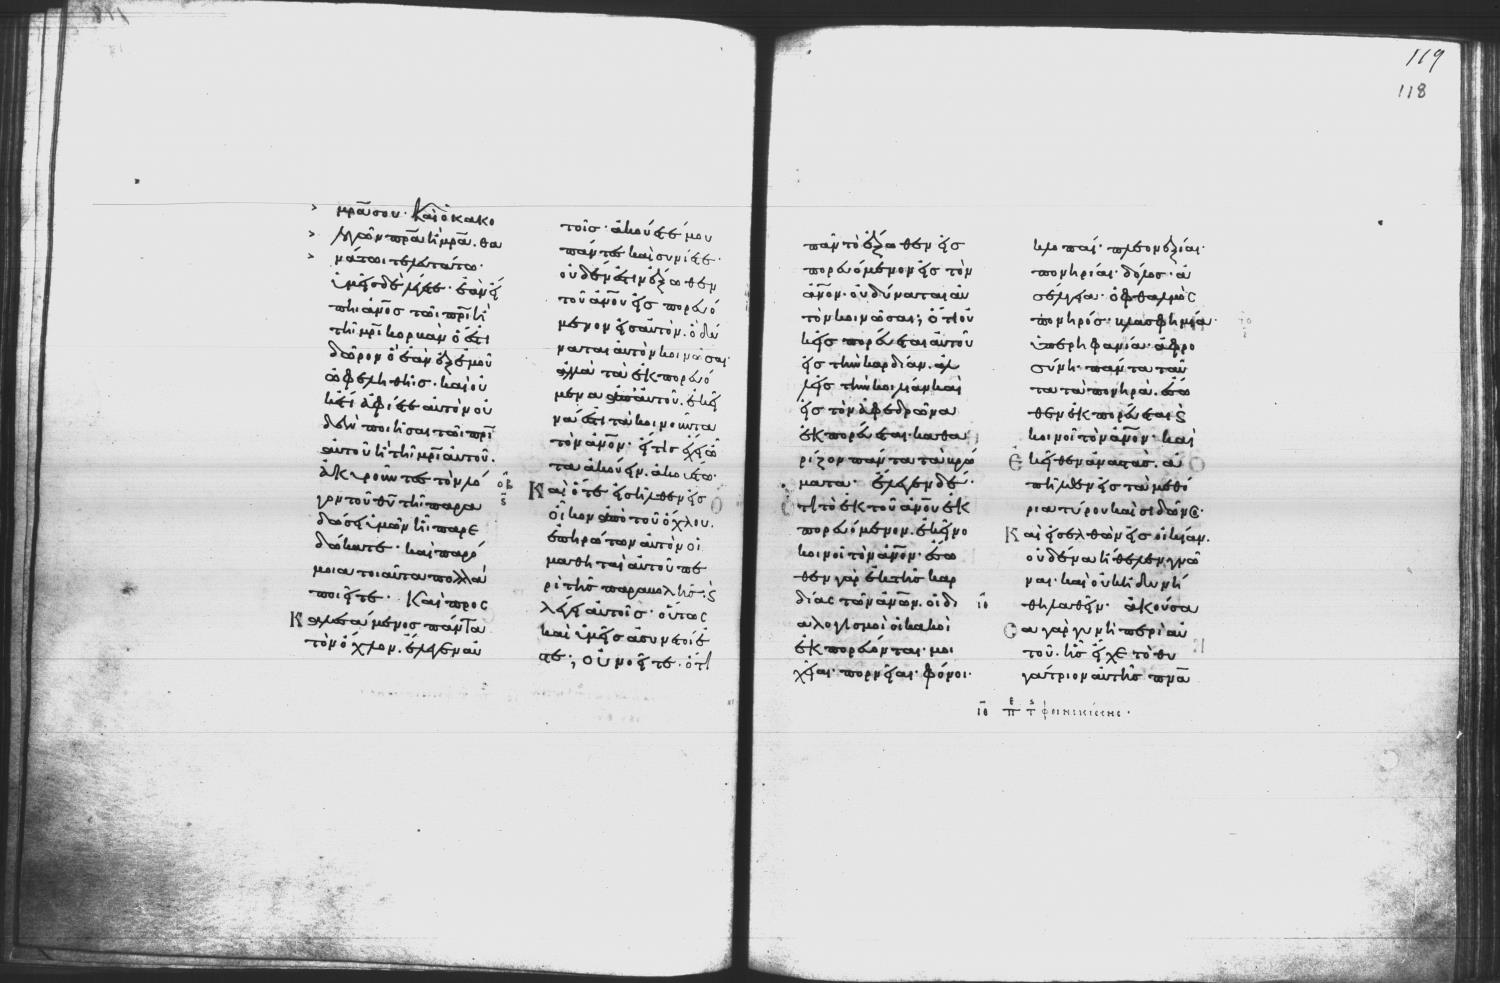 119
118
μρ̅α σου· Καὶ ὁ κακο
λογῶν πρ̅α ἢ μρ̅α· θα
νάτωι τελευτάτω·
ὑμεῖς δὲ λέγετε· ἐὰν εἴ
πηι ἄνο̅ς τῶι πρ̅ι ἢ
τῆι μρ̅ι κορβὰν ὅ ἐστι
δῶρον ὃ ἐὰν ἐξ ἐμοῦ
ὠφεληθῆις· καὶ οὐ
κέτι ἀφίετε αὐτὸν οὐ
δὲν ποιῆσαι τῶι πρ̅ι
αὐτοῦ ἢ τῆι μρ̅ι αὐτοῦ·
ἀκυροῦντες τὸν λό
γον τοῦ θυ̅ τῆι παρα
δώσει ὑμῶν ἧι παρε
δώκατε· καὶ παρό
μοια τοιαῦτα πολλὰ
ποιεῖτε· Καὶ προς
Καλεσάμενος πάντα
τὸν ὄχλον· ἔλεγεν αὐ
τοῖς· ἀκούετέ μου
πάντες καὶ συνίετε·
οὐδέν ἐστιν ἔξωθεν
τοῦ ἀνο̅υ εἰσπορευό
μενον εἰς αὐτόν· ὃ δύ
ναται αὐτὸν κοινῶσαι·
ἀλλὰ τὰ ἐκπορευό
μενα ἀπ' αὐτοῦ· ἐκεῖ
νά ἐστι τὰ κοινοῦντα
τὸν ἄνο̅ν· εἴ τις ἔχει ὦ
τα ἀκούειν· ἀκουέτω·
Καὶ ὅτε εἰσῆλθεν εἰς
οἶκον ἀπὸ τοῦ ὄχλου·
ἐπηρώτων αὐτὸν οἱ
μαθηταὶ αὐτοῦ πε
ρὶ τῆς παραβολῆς· ϛ
λέγει αὐτοῖς· οὕτως
καὶ ὑμεῖς ἀσύνετοί ἐσ
τε; οὐ νοεῖτε· ὅτι
πᾶν τὸ ἔξωθεν εἰσ
πορευόμενον εἰς τὸν
ἄνο̅ν· οὐ δύναται αὐ
τὸν κοινῶσαι; ὅτι οὐ
κ εἰσπορεύεται αὐτοῦ
εἰς τὴν καρδίαν· ἀλ
λ' εἰς τὴν κοιλίαν καὶ
εἰς τὸν ἀφεδρῶνα
ἐκπορεύεται· καθα
ρίζον πάντα τὰ βρώ
ματα· ἔλεγεν δέ·
ὅτι τὸ ἐκ τοῦ ἀνο̅υ ἐκ
πορευόμενον· ἐκεῖνο
κοινοῖ τὸν ἄνο̅ν· ἔσω
θεν γὰρ ἐκ τῆς καρ
δίας τῶν ἀνω̅ν· οἱ δι
αλογισμοὶ οἱ κακοὶ
ἐκπορεύονται· μοι
χεῖαι· πορνεῖαι· φόνοι·
κλοπαί· πλεονεξίαι·
πονηρίαι· δόλος· ἀ
σέλγεια· ὀφθαλμὸς
πονηρός· βλασφημία·
ὑπερηφανία· ἀφρο
σύνη· πάντα ταῦ
τα τὰ πονηρὰ· ἔσω
θεν ἐκπορεύεται ϛ
κοινοῖ τὸν ἄνο̅ν· καὶ
Εκεῖθεν ἀναστάς· ἀ
πῆλθεν εἰς τὰ μεθό
ρια τύρου καὶ σιδῶνος·
Καὶ εἰσελθὼν εἰς οἰκίαν·
οὐδένα ἤθελεν γνῶ
ναι· καὶ οὐκ ἠδυνή
θη λαθεῖν· ἀκούσα
Σα γὰρ γυνὴ περὶ αὐ
τοῦ· ἧς εἶχε τὸ θυ
γάτριον αὐτῆς πν̅α
ιθ π τ φοινικίσσης·